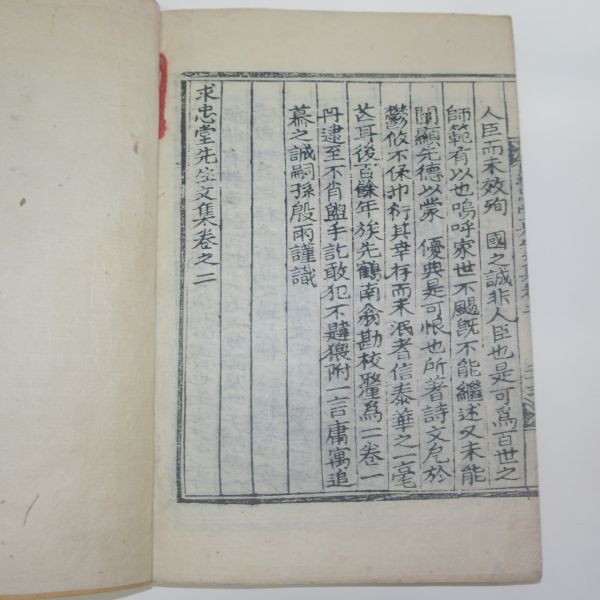 人臣而未效殉 國之誠非人臣也是可爲百世之
師範有以也嗚呼家世不颺旣不能繼述又未能
闡顯先德以蒙 優典是可恨也所著詩文厄於
鬱攸不保抑衍其幸存而未泯者信泰華之一毫
芒耳後百餘年族先鶴南翁勘校釐爲二卷一
丹逮至不肖盥手訖敢犯不韙猥附一言庸寓追
慕之誠嗣孫殷雨謹識
求忠堂先生文集卷之二